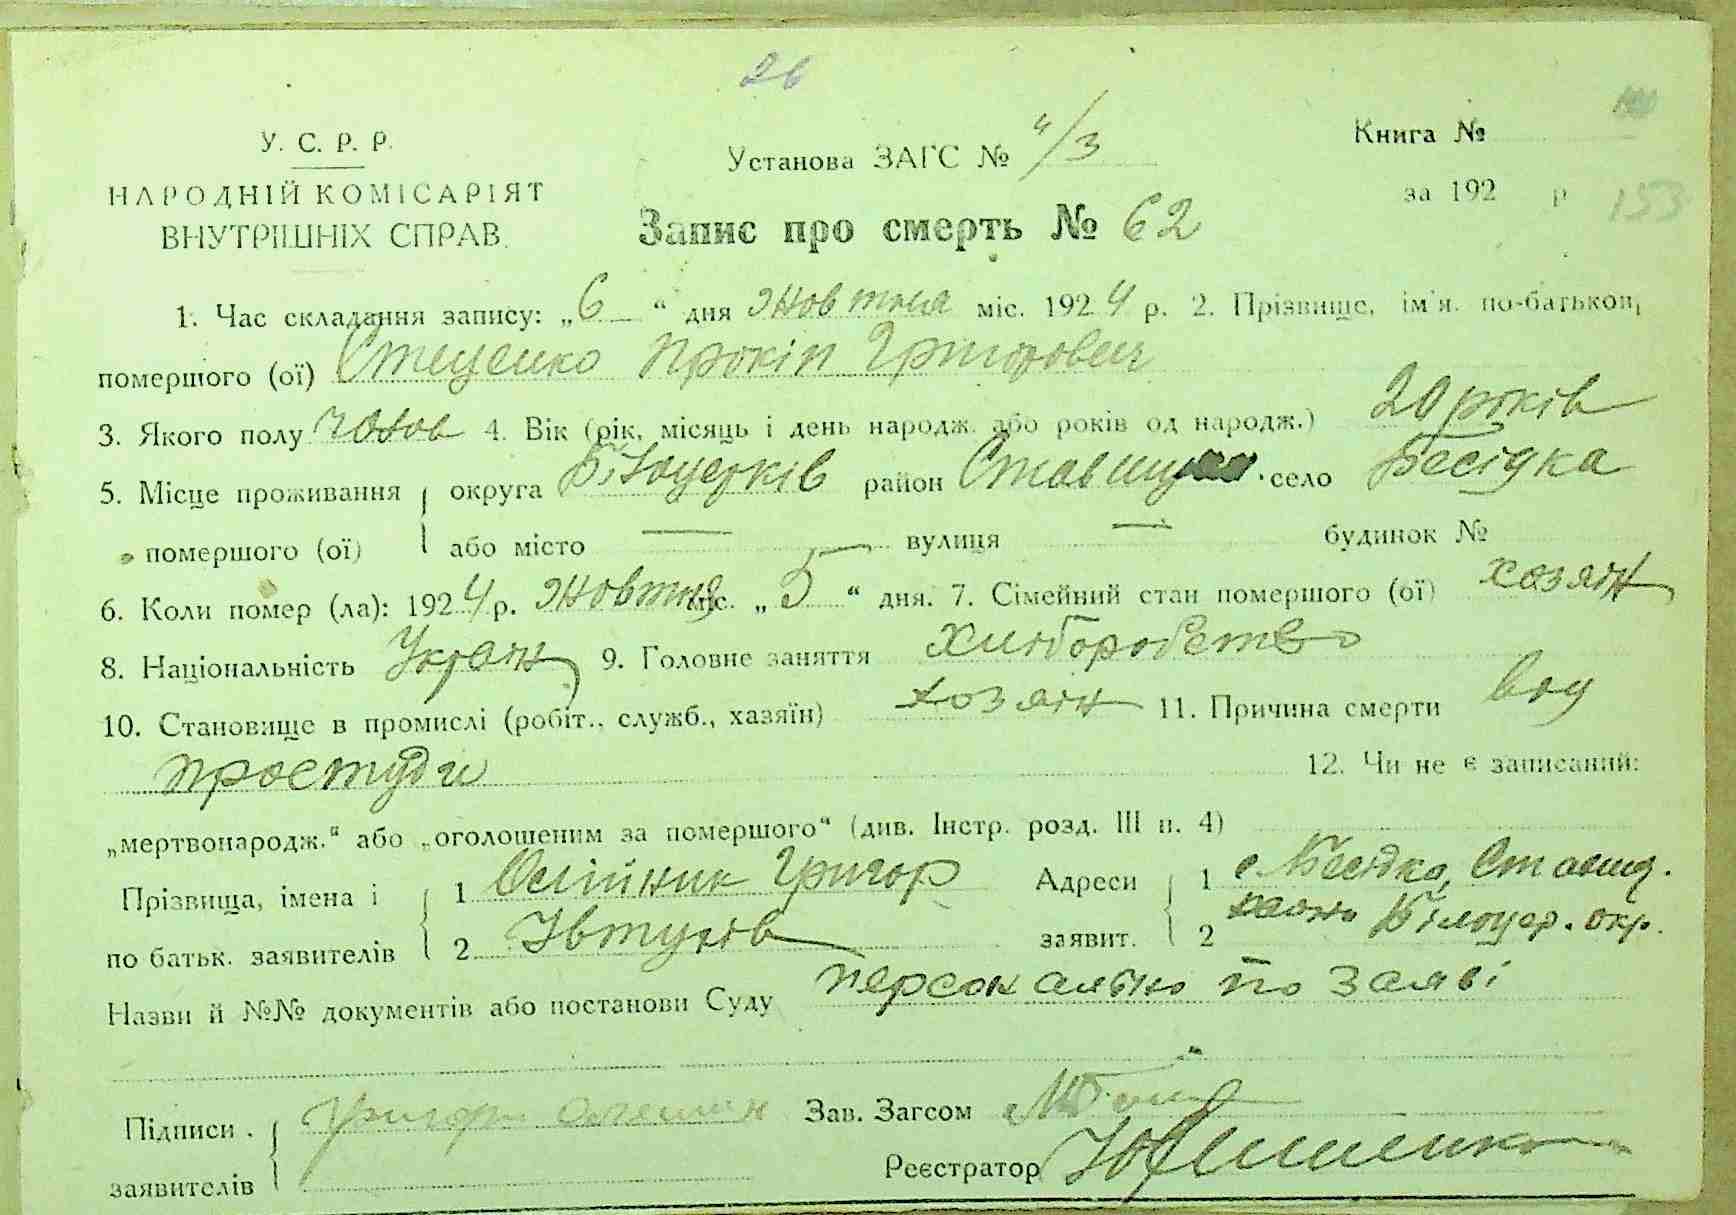 26
У. С. Р. Р.
НАРОДНІЙ КОМІСАРІЯТ
ВНУТРІШНІХ СПРАВ.
Установа ЗАГС № 4/3
Книга №
за 192 р
153
Запис про смерть № 62
1. Час складання запису: „6“ дня жовтня міс. 1924 р. 2. Прізвище, ім'я. по-батькові,
помершого (ої) Стеценко Прокіп Григорович
3. Якого полу чолов 4. Вік (рік, місяць і день народж. або років од народж.) 20 років
5. Місце проживання округа Білоцерків район Ставищ село Бесідка
помершого (ої) або місто — вулиця — будинок №
6. Коли помер (ла): 1924 р. жовтня міс. „5“ дня. 7. Сімейний стан помершого (ої) хозяїн
8. Національність Україн 9. Головне заняття хліборобство
10. Становище в промислі (робіт., служб., хазяїн) хозяїн 11. Причина смерти від
простуди 12. Чи не є записаний:
„мертвонародж.“ або „оголошеним за помершого“ (див. Інстр. розд. III п. 4)
Прізвища, імена і 1 Олійник Григор Адреси 1 с Бесідка, Ставищ.
по батьк. заявителів 2 Івтухів заявит. 2 Білоцер. окр.
Назви й №№ документів або постанови Суду персонально по заяві
Підписи Григорій Зав. Загсом
заявителів Реєстратор